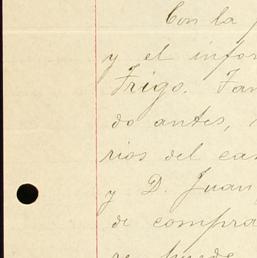 Con la
y el infor
Frigo. Fan
do antes,
rios del cas
y D. Juan
de compra
se puede